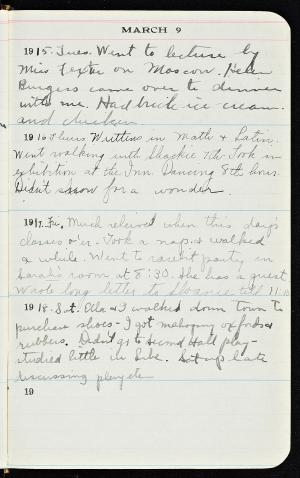 MARCH 9
1915. Tues. Went to lecture by
Miss Texter on Moscow. Helen
Burgess came over to dinner
with me. Had brick ice-cream
and chicken
1916 Thurs. Writtens in Math & Latin.
Went walking with Shackie 7th. Took in
exhibition at the Inn. Dancing 8th hour.
Didn't snow for a wonder.
1917. Fri. Much relieved when this day's
classes o'er. Took a nap & walked
a while. Went to party in
Sarah's room at 8:30. She has a guest
Wrote long letter to till 11:10
1918. Sat. Ella & I walked down town to
purchase shoes - I got mahogany oxfords &
rubbers. Didn't go to second Hall play-
studied little in Libe. Sat up late
discussing play etc
19